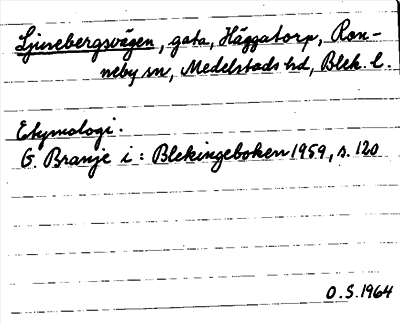 Ljusebergsvägen, gata, Häggatorp, Ron-
neby sn, Medelstads hd, Blek. l.
Etymologi.
G. Branje i: Blekingeboken 1959, s. 120
O.S. 1964